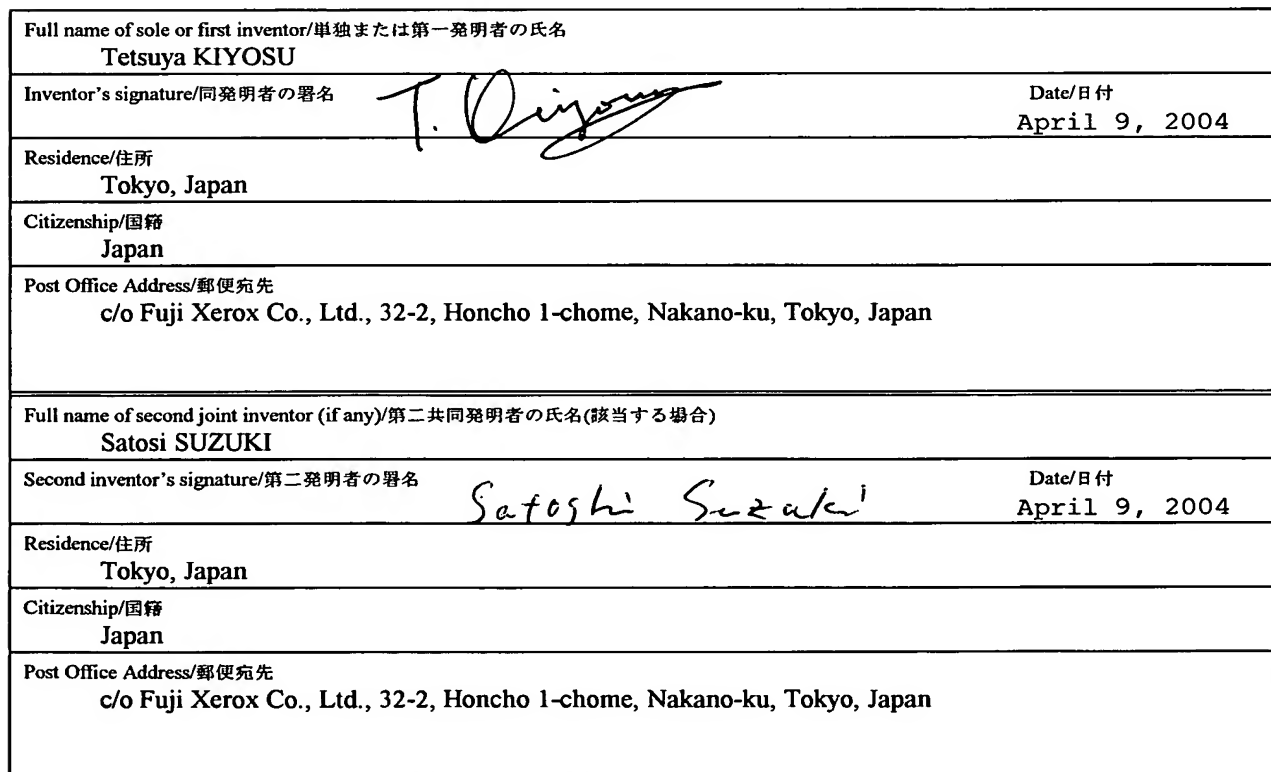 Full name of sole or first inventor/単独または第一発明者の氏名
Tetsuya KIYOSU
Inventor's signature/同発明者の署名
T. Kiyosu
Date/日付
April 9, 2004
Residence/住所
Tokyo, Japan
Citizenship/国籍
Japan
Post Office Address/郵便宛先
c/o Fuji Xerox Co., Ltd., 32-2, Honcho 1-chome, Nakano-ku, Tokyo, Japan
Full name of second joint inventor (if any)/第二共同発明者の氏名(該当する場合)
Satosi SUZUKI
Second inventor's signature/第二発明者の署名
Satoshi Suzuki
Date/日付
April 9, 2004
Residence/住所
Tokyo, Japan
Citizenship/国籍
Japan
Post Office Address/郵便宛先
c/o Fuji Xerox Co., Ltd., 32-2, Honcho 1-chome, Nakano-ku, Tokyo, Japan